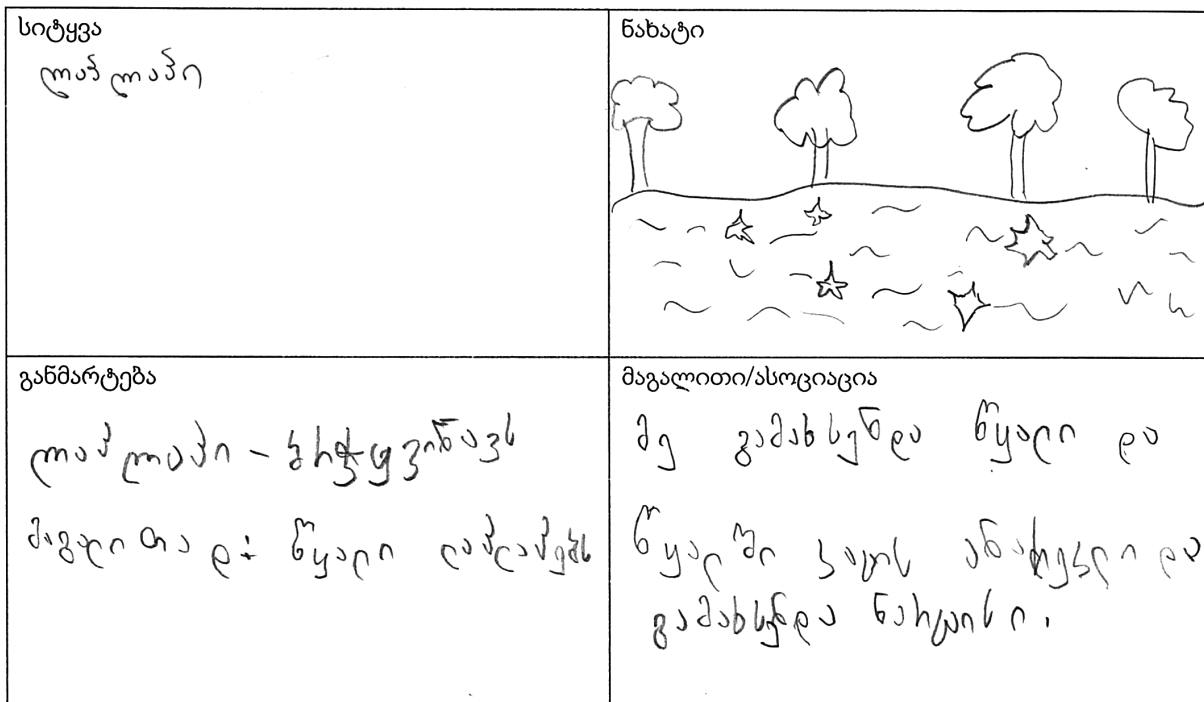 სიტყვა
ლაპლაპი
ნახატი
განმარტება
ლაპლაპი - ბრჭყვინავს
მაგალითად: წყალი ლაპლაპებს
მაგალითი/ასოციაცია
მე გამახსენდა წყალი და
წყალში კაცის ანარეკლი და
გამახსენდა ნარცისი.